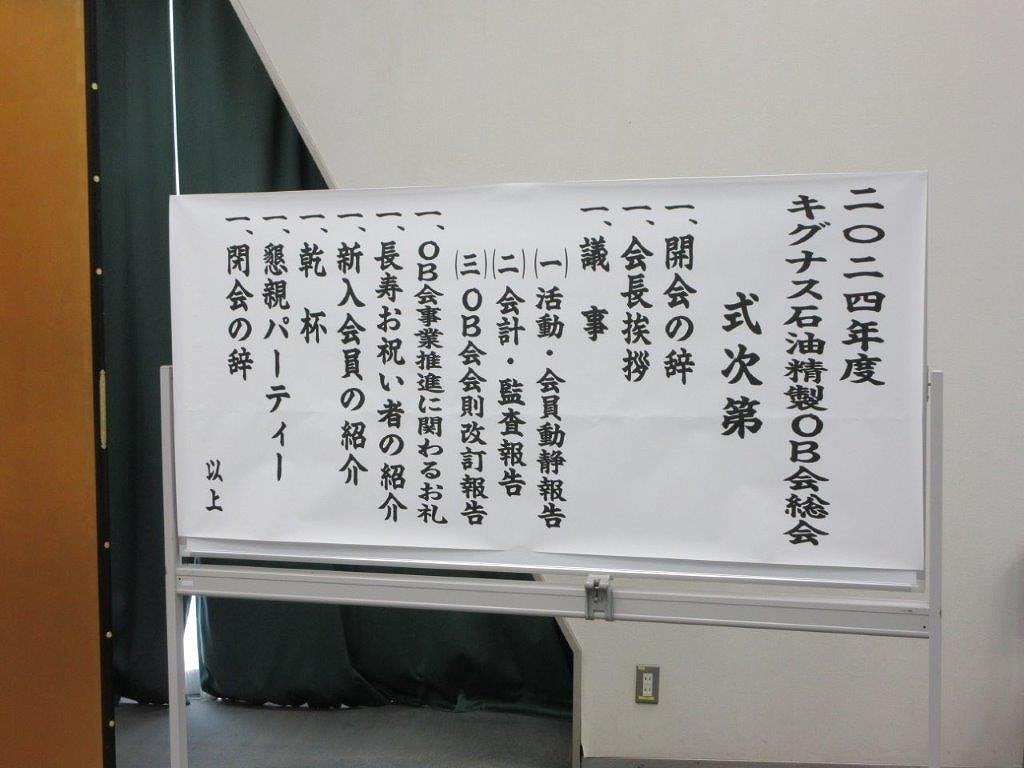 二〇二四年度
キグナス石油精製OB会総会
式次第
一、開会の辞
一、会長挨拶
一、議 事
(一)活動・会員動静報告
(二)会計・監査報告
(三)OB会会則改訂報告
一、OB会事業推進に関わるお礼
一、長寿お祝い者の紹介
一、新入会員の紹介
一、乾 杯
一、懇親パーティー
一、閉会の辞
以上